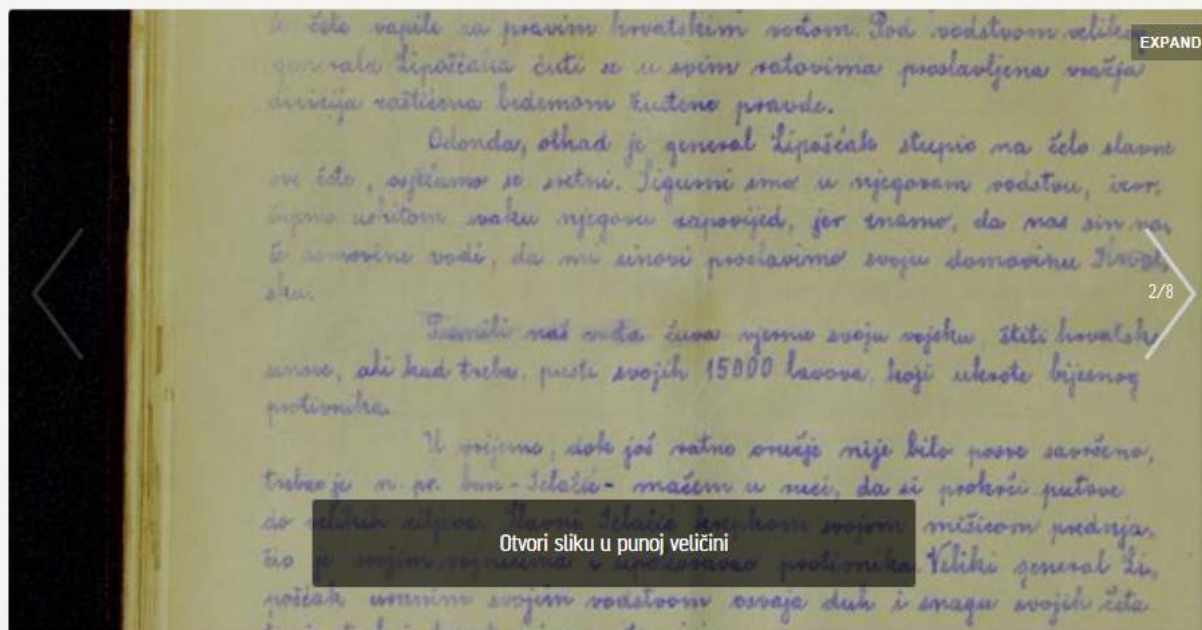 će čete vapile za pravim hrvatskim vođom. Pod vodstvom velikog
EXPAND
generala Lipošćaka ćuti se u svim ratovima proslavljena vražja
divizija zaštićena bedemom žuđene pravde.
Odonda, otkad je general Lipošćak stupio na čelo slavne
ove čete, osjećamo se sretni. Sigurni smo u njegovom vodstvu, izvr,
šujemo ushitom svaku njegovu zapovijed, jer znamo, da nas sin na,
še domovine vodi, da mi sinovi proslavimo svoju domovinu Hrvat,
sku.
2/8
naš vođa čuva vjerno svoju vojsku, štiti hrvatske
sinove, ali kad treba, pusti svojih 15000 lavova, koji ukrote bijesnog
protivnika.
U vrijeme, dok još ratno oružje nije bilo posve savršeno,
trebao je n. pr. ban-Jelačić- mačem u ruci, da si prokrči putove
do velikih ciljeva. Slavni Jelačić krepkom svojom mišicom prednja,
Otvori sliku u punoj veličini
čio je svojim vojnicima i upokoravao protivnika. Veliki general Li,
pošćak umnim svojim vodstvom osvaja duh i snagu svojih četa